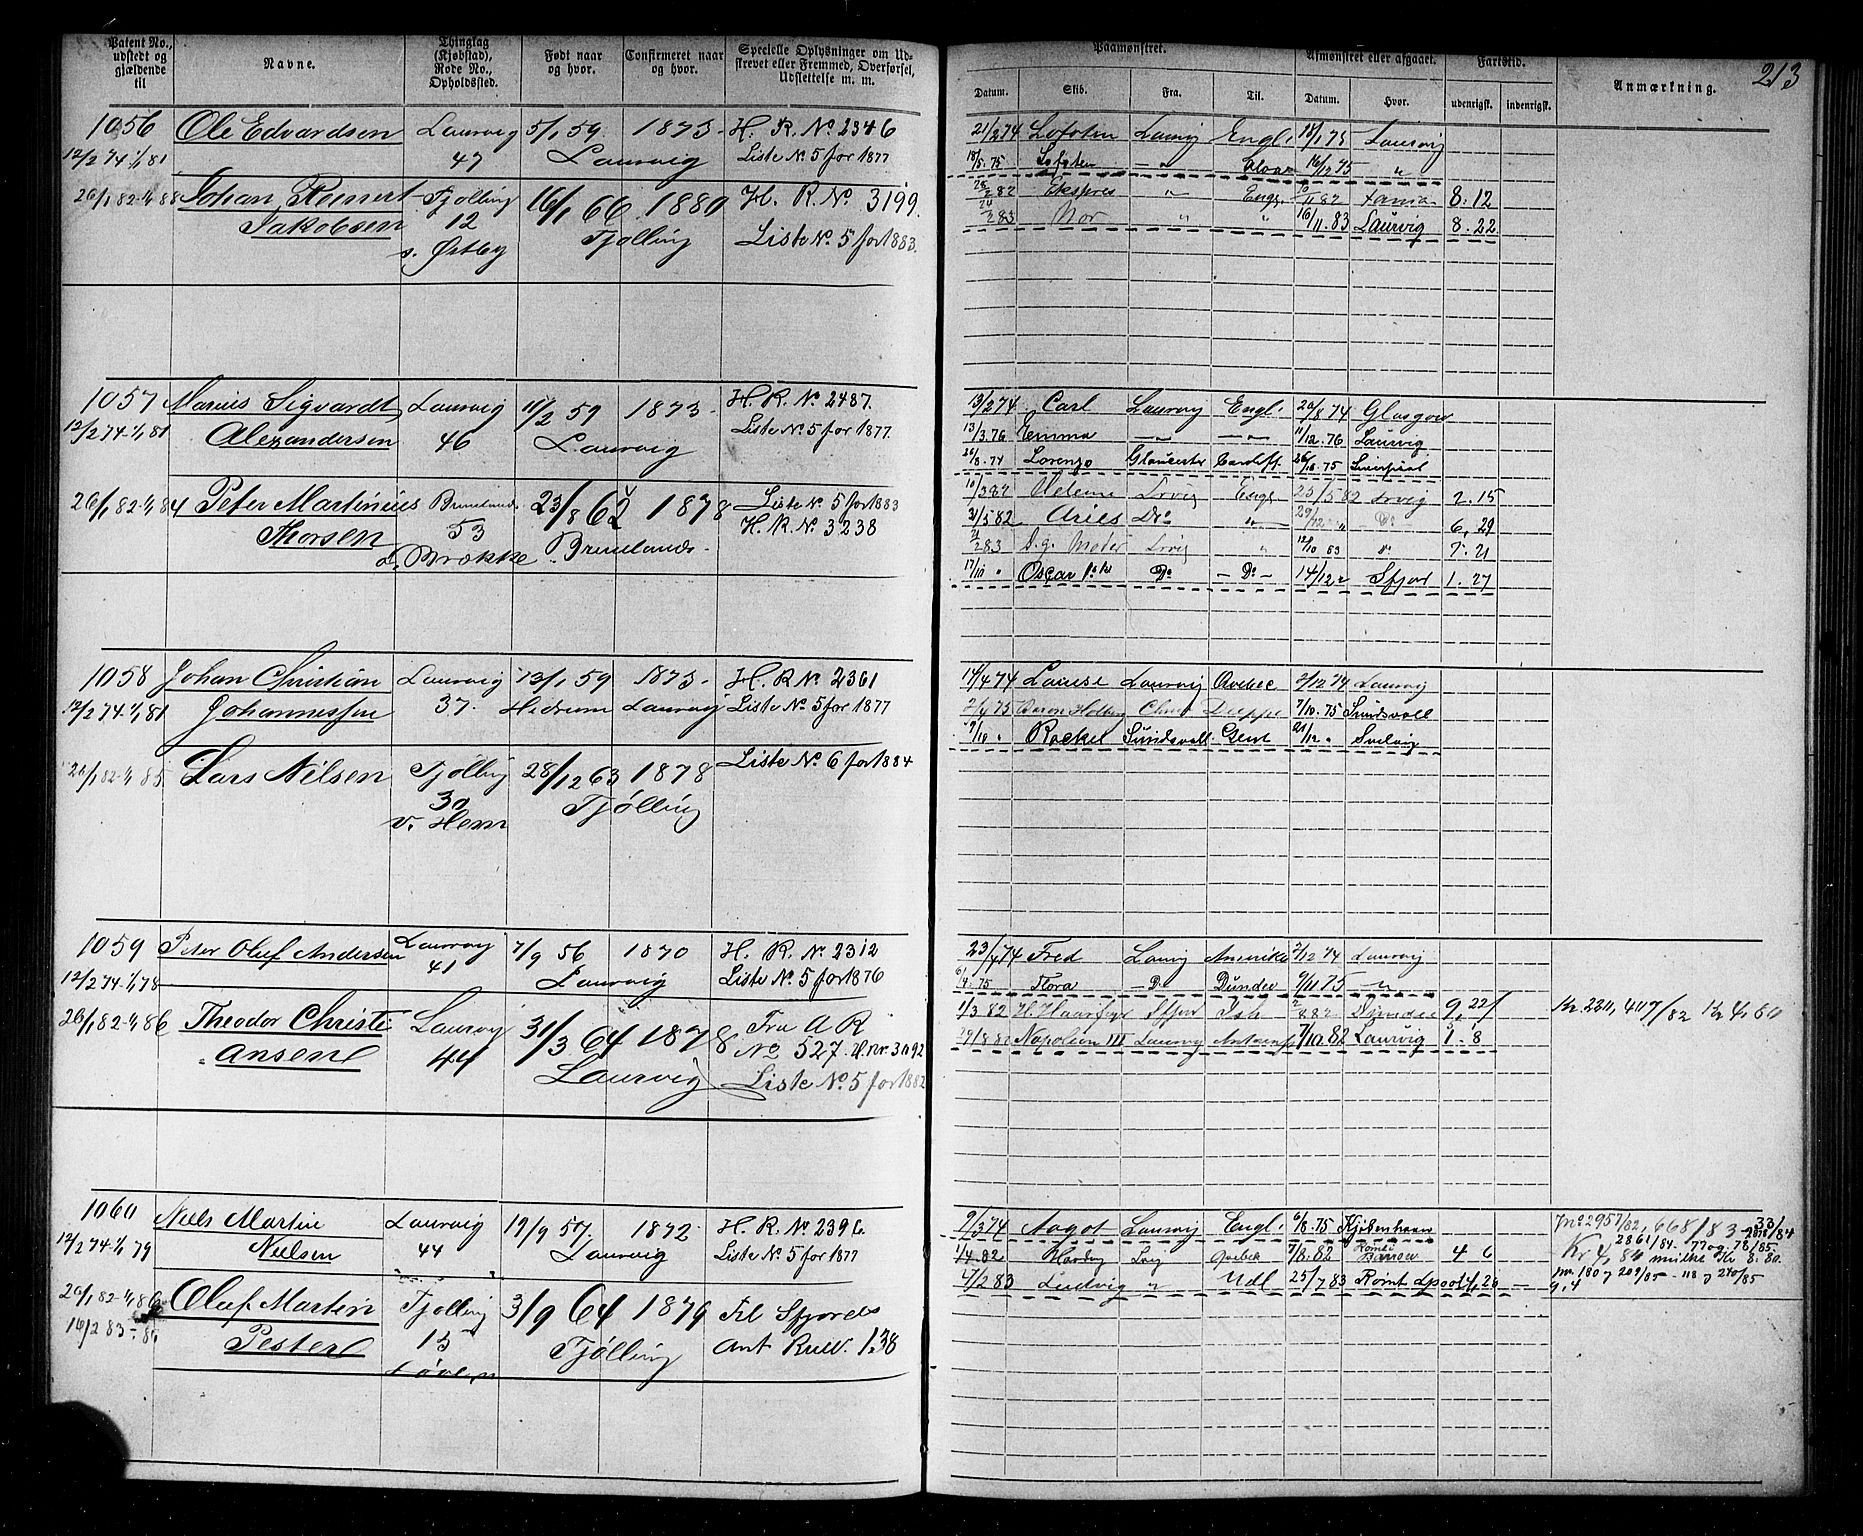 Patent No., udstedt og gjældende til
Navne.
Thinglag (Kjøbstad), Rode No., Opholdssted.
Født naar og hvor.
Confirmeret naar og hvor.
Specielle Oplysninger om Udskrevet eller Fremmed, Overførsel, Udslettelse m. m.
1056 Ole Edvardsen Laurvig 5/1 59. 1873. H. R. No 2346
12/2 74-1/1 81 47 Laurvig Liste No. 5 for 1877
26/1 82-1/1 88 Johan Reinert Tjølling 16/1 66 1880 H. R. No 3199.
Jakobsen 12 Tjølling Liste No. 5 for 1883.
s. Østby
1057 Marius Sigvardt Laurvig 11/2 59 1873. H. R. No 2487.
12/2 74-1/1 81 Alexandersen 46 Laurvig Liste No. 5 for 1877.
26/1 82-1/1 84 Peter Martinius Brunlands 23/8 62 1878 Liste No. 5 for 1883
Thorsen 53 Brunlands. H. R. No. 3238
Brække
1058 Johan Christian Laurvig 13/1 59 1873. H. R. No 2361
12/2 74-1/1 81 Johannessen 37. Hedrum Laurvig Liste No. 5 for 1877
1/1 85 Lars Nilsen Tjølling 28/12 63 1878 Liste No. 6 for 1884
30 Tjølling
v. Hem
1059 Peter Oluf Andersen Laurvig 7/9 56 1870 H. R. No. 2312
12/2 74-1/1 78 41 Laurvig Liste No. 5 for 1876
26/1 82-1/1 86 Theodor Christi- Laurvig 31/3 64 1878 Fra A R
ansen 44 Laurvig No 527. H.nr. 3092
Liste No. 5 for 1882
1060 Niels Martin Laurvig 19/9 57. 1872. H. R. No. 2396.
12/2 74-1/1 79 Nielsen 44 Laurvig Liste No. 5 for 1877
26/1 82-1/1 86 Oluf Martin Tjølling 3/9 64 1879 Til Sfjords
16/2 83- Pester 15 Tjølling Ant Rull. 138
213
Paamønstret.
Afmønstret eller afgaaet.
Fartstid.
Anmærkning.
Datum. Skib. Fra. Til. Datum. Hvor. udenrigsk. indenrigsk.
21/2 74 Lofoten Laurvig Engl. 18/1 75 Laurvig
18/5. 75 Lofoten 16/12 75 "
82 Ekspres " Engl. 82 8. 12
2 83 Nor " " 16/11. 83 Laurvig 8. 22
13/2 74 Carl Laurvig Engl. 20/8 74 Glasgow
13/3. 76 Emma 11/12. 76 Laurvig
26/8. 74 Lorenzo Gloucester Cardiff 75 Liverpool
10/3 82 Helene Lrvig Engl 25/5 82 Lrvig 2. 15
31/5 82 Aries Do " 29/12 " Do 6, 29
2 83 Lrvig " 12/10 83 " 7. 21
17/10 " Oscar Do - Do - 14/12 " Sfjor 1. 27
14/4 74 Louise Laurvig Qvebec 2/12 74 Laurvig
2/4 75 Baron Holberg Chra Dieppe 7/10. 75 Sundsvall
9/10 " Rackel Sundsvall Gent 21/12 " Svelvig
23/4 74 Fred Laurvig Amerika 2/12 74 Laurvig
75 Flora - Do Dundee 9/11 75
1/3 82 H. Haarfagr Sfjor 82 Dundee 9, 22 Kr. 2311, 407/82 Kr 4, 60
29/8 82 Napoleon III Laurvig 7/10 82 Laurvig 1. 8
9/3 74 Aagot Laurvig Engl. 6/8. 75 Kjøbenhavn
1/4. 82 Harding Lvig Qvebek 7/8. 82 Barrow 4 6
4/2 83 Ludvig " Udl 25/7 83 Rømt Lpool 4, 20
Jno 2957/82, 668/83
2861/84. 77 og 78/85.
Kr 4, 84 Kr 8. 80.
180 og 209/85 - 118 og 240/85